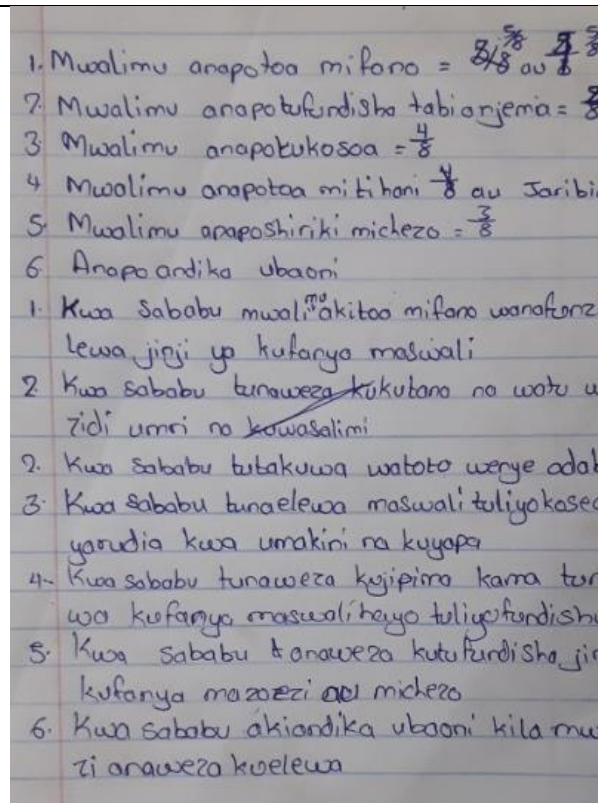 1. Mwalimu anapotoa mifano = 5/8 au 5/8
2. Mwalimu anapotufundisha tabia njema =
3. Mwalimu anapotukosoa = 4/8
4 Mwalimu anapotoa mitihani 4/8 au Jaribi
5. Mwalimu apaposhiriki michezo = 3/8
6. Anapo andika ubaoni
1. Kwa sababu mwalimu akitoa mifano wanafunz
lewa jinji ya kufanya maswali
2. Kwa sababu tunaweza kukutana na watu
zidi umri na kowasalimi
2. Kwa sababu tutakuwa watoto wenye adab
3. Kwa sababu tunaelewa maswali tuliyokose
yarudia kwa umakini na kuyapa
4- Kwa sababu tunaweza kujipima kama tun
wa kufanya maswali hayo tuliyofundish
5. Kwa sababu tanaweza kutufundisha jin
kufanya mazoezi au michezo
6. Kwa sababu akiandika ubaoni kila mw
zi anaweza kuelewa